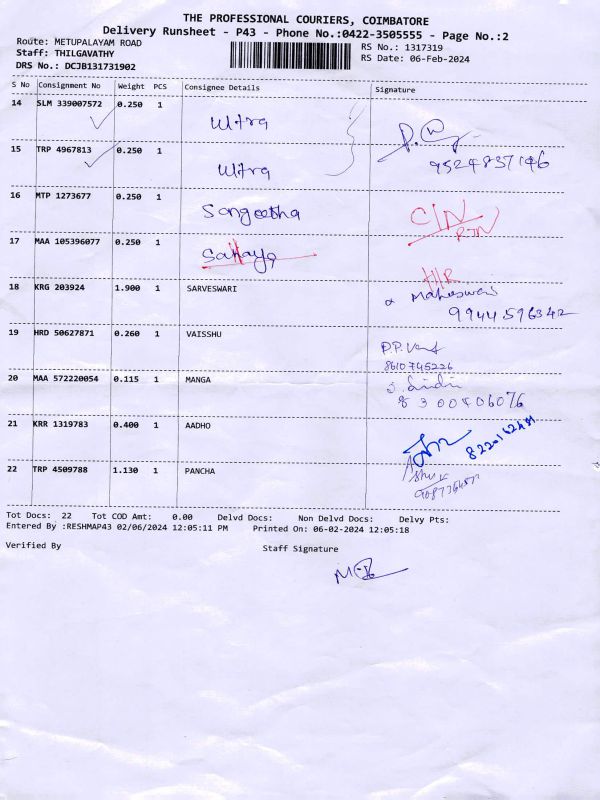 THE PROFESSIONAL COURIERS, COIMBATORE
Delivery Runsheet - P43 - Phone No.:0422-3505555 - Page No.:2
Route: METUPALAYAM ROAD RS No.: 1317319
Staff: THILGAVATHY RS Date: 06-Feb-2024
DRS No.: DCJB131731902
S No Consignment No Weight PCS Consignee Details Signature
14 SLM 339007572 0.250 1 Ultra
15 TRP 4967813 0.250 1 Ultra
16 MTP 1273677 0.250 1 Sangeetha
17 MAA 105396077 0.250 1
18 KRG 203924 1.900 1 SARVESWARI Maheswari
9944596342
19 HRD 50627871 0.260 1 VAISSHU
8610745226
20 MAA 572220054 0.115 1 MANGA
8300406076
21 KRR 1319783 0.400 1 AADHO
22 TRP 4509788 1.130 1 PANCHA
Tot Docs: 22 Tot COD Amt: 0.00 Delvd Docs: Non Delvd Docs: Delvy Pts:
Entered By :RESHMAP43 02/06/2024 12:05:11 PM Printed On: 06-02-2024 12:05:18
Verified By Staff Signature